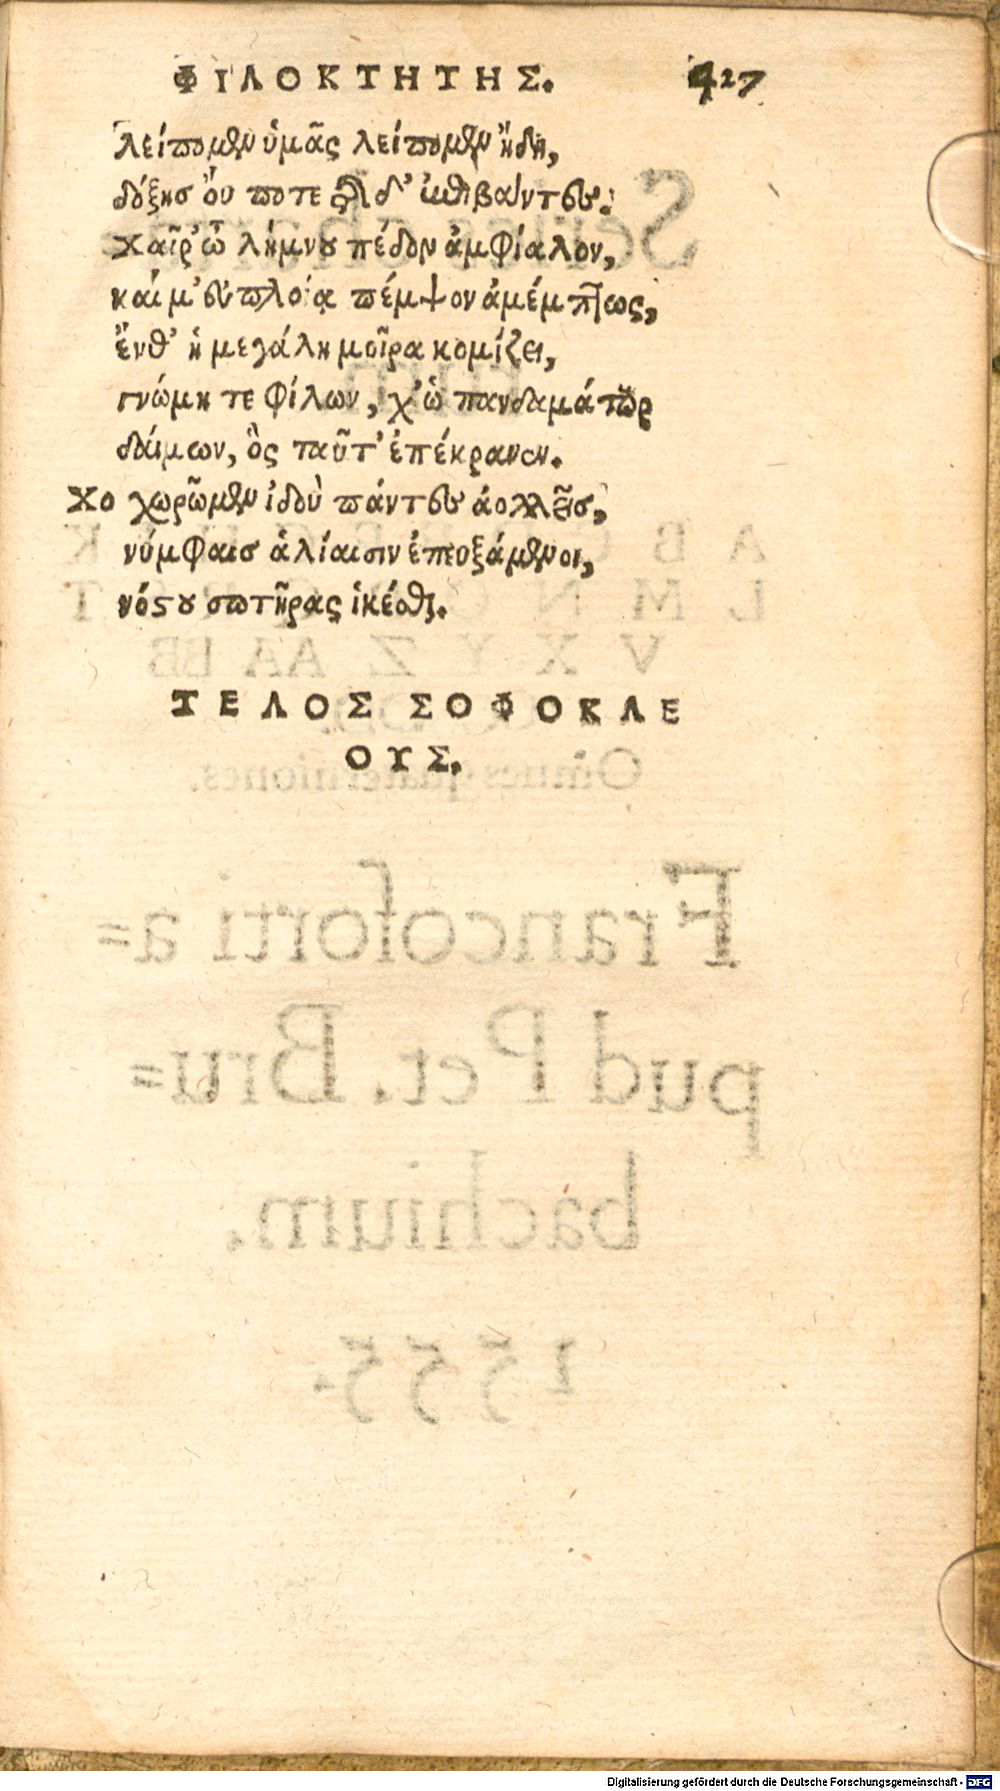 ΦΙΛΟΚΤΗΤΗΣ. 427
λείπομεν ὑμᾶς λείπομεν ἤδη,
δόξησ ὄυ ποτε τῆσδ’ ἐπιβάντες.
Χαῖρ’ ὦ λήμνου πέδον ἀμφίαλον,
καί μ’ εὐπλοίᾳ πέμψον ἀμέμπτως,
ἔνθ’ ἡ μεγάλη μοῖρα κομίζει,
γνώμη τε φίλων, χ’ ὡ πανδαμάτωρ
δάιμων, ὃς ταῦτ’ ἐπέκρανεν.
Χο χωρῶμεν ἰδοὺ πάντες ἀολλεῖσ,
νύμφαισ ἁλίαισιν ἐπευξάμενοι,
νόστου σωτῆρας ἱκέσθαι.
ΤΕΛΟΣ ΣΟΦΟΚΛΕ
ΟΥΣ.
Digitalisierung gefördert durch die Deutsche Forschungsgemeinschaft - DFG